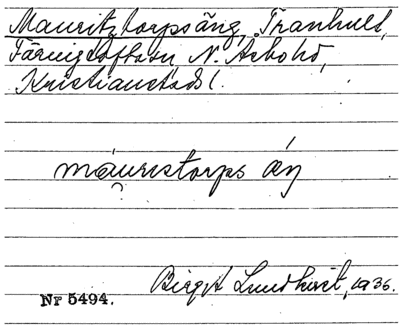 Mauritztorpsäng, Tranhult,
Färingtofta sn, N. Åsbo hd,
Kristianstads l.
måuristorps æŋ
Birgit Lundkvist, 1936.
Nr 5494.